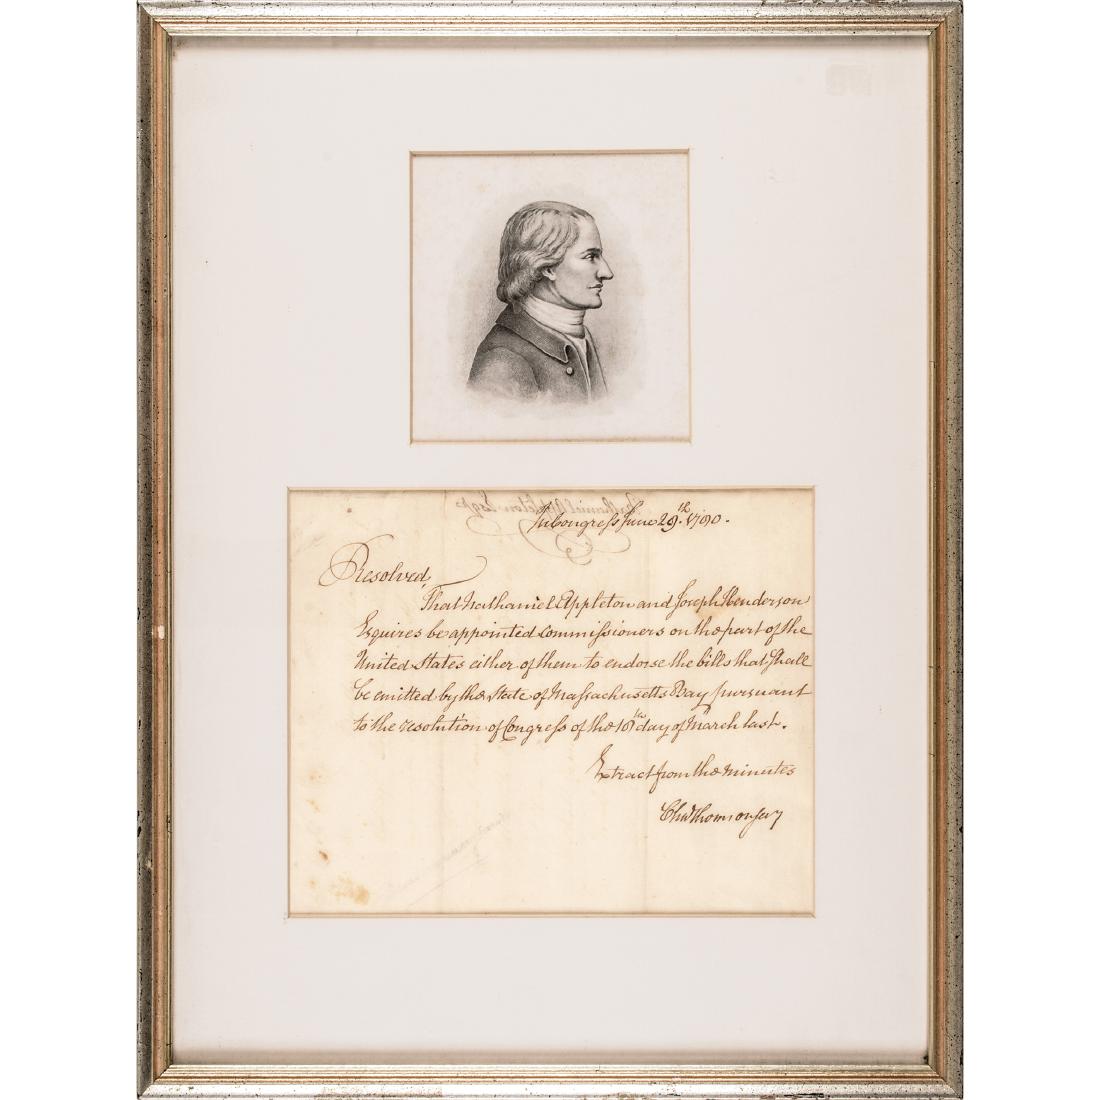 In Congress June 29.th 1780.
Resolved,
That Nathaniel Appleton and Joseph Henderson
Esquires be appointed commissioners on the part of the
United States either of them to endorse the bills that shall
be emitted by the State of Massachusetts Bay pursuant
to the resolution of Congress of the 18th day of March last.
Extract from the minutes
Cha Thomson secy
Nathaniel Appleton Esqr